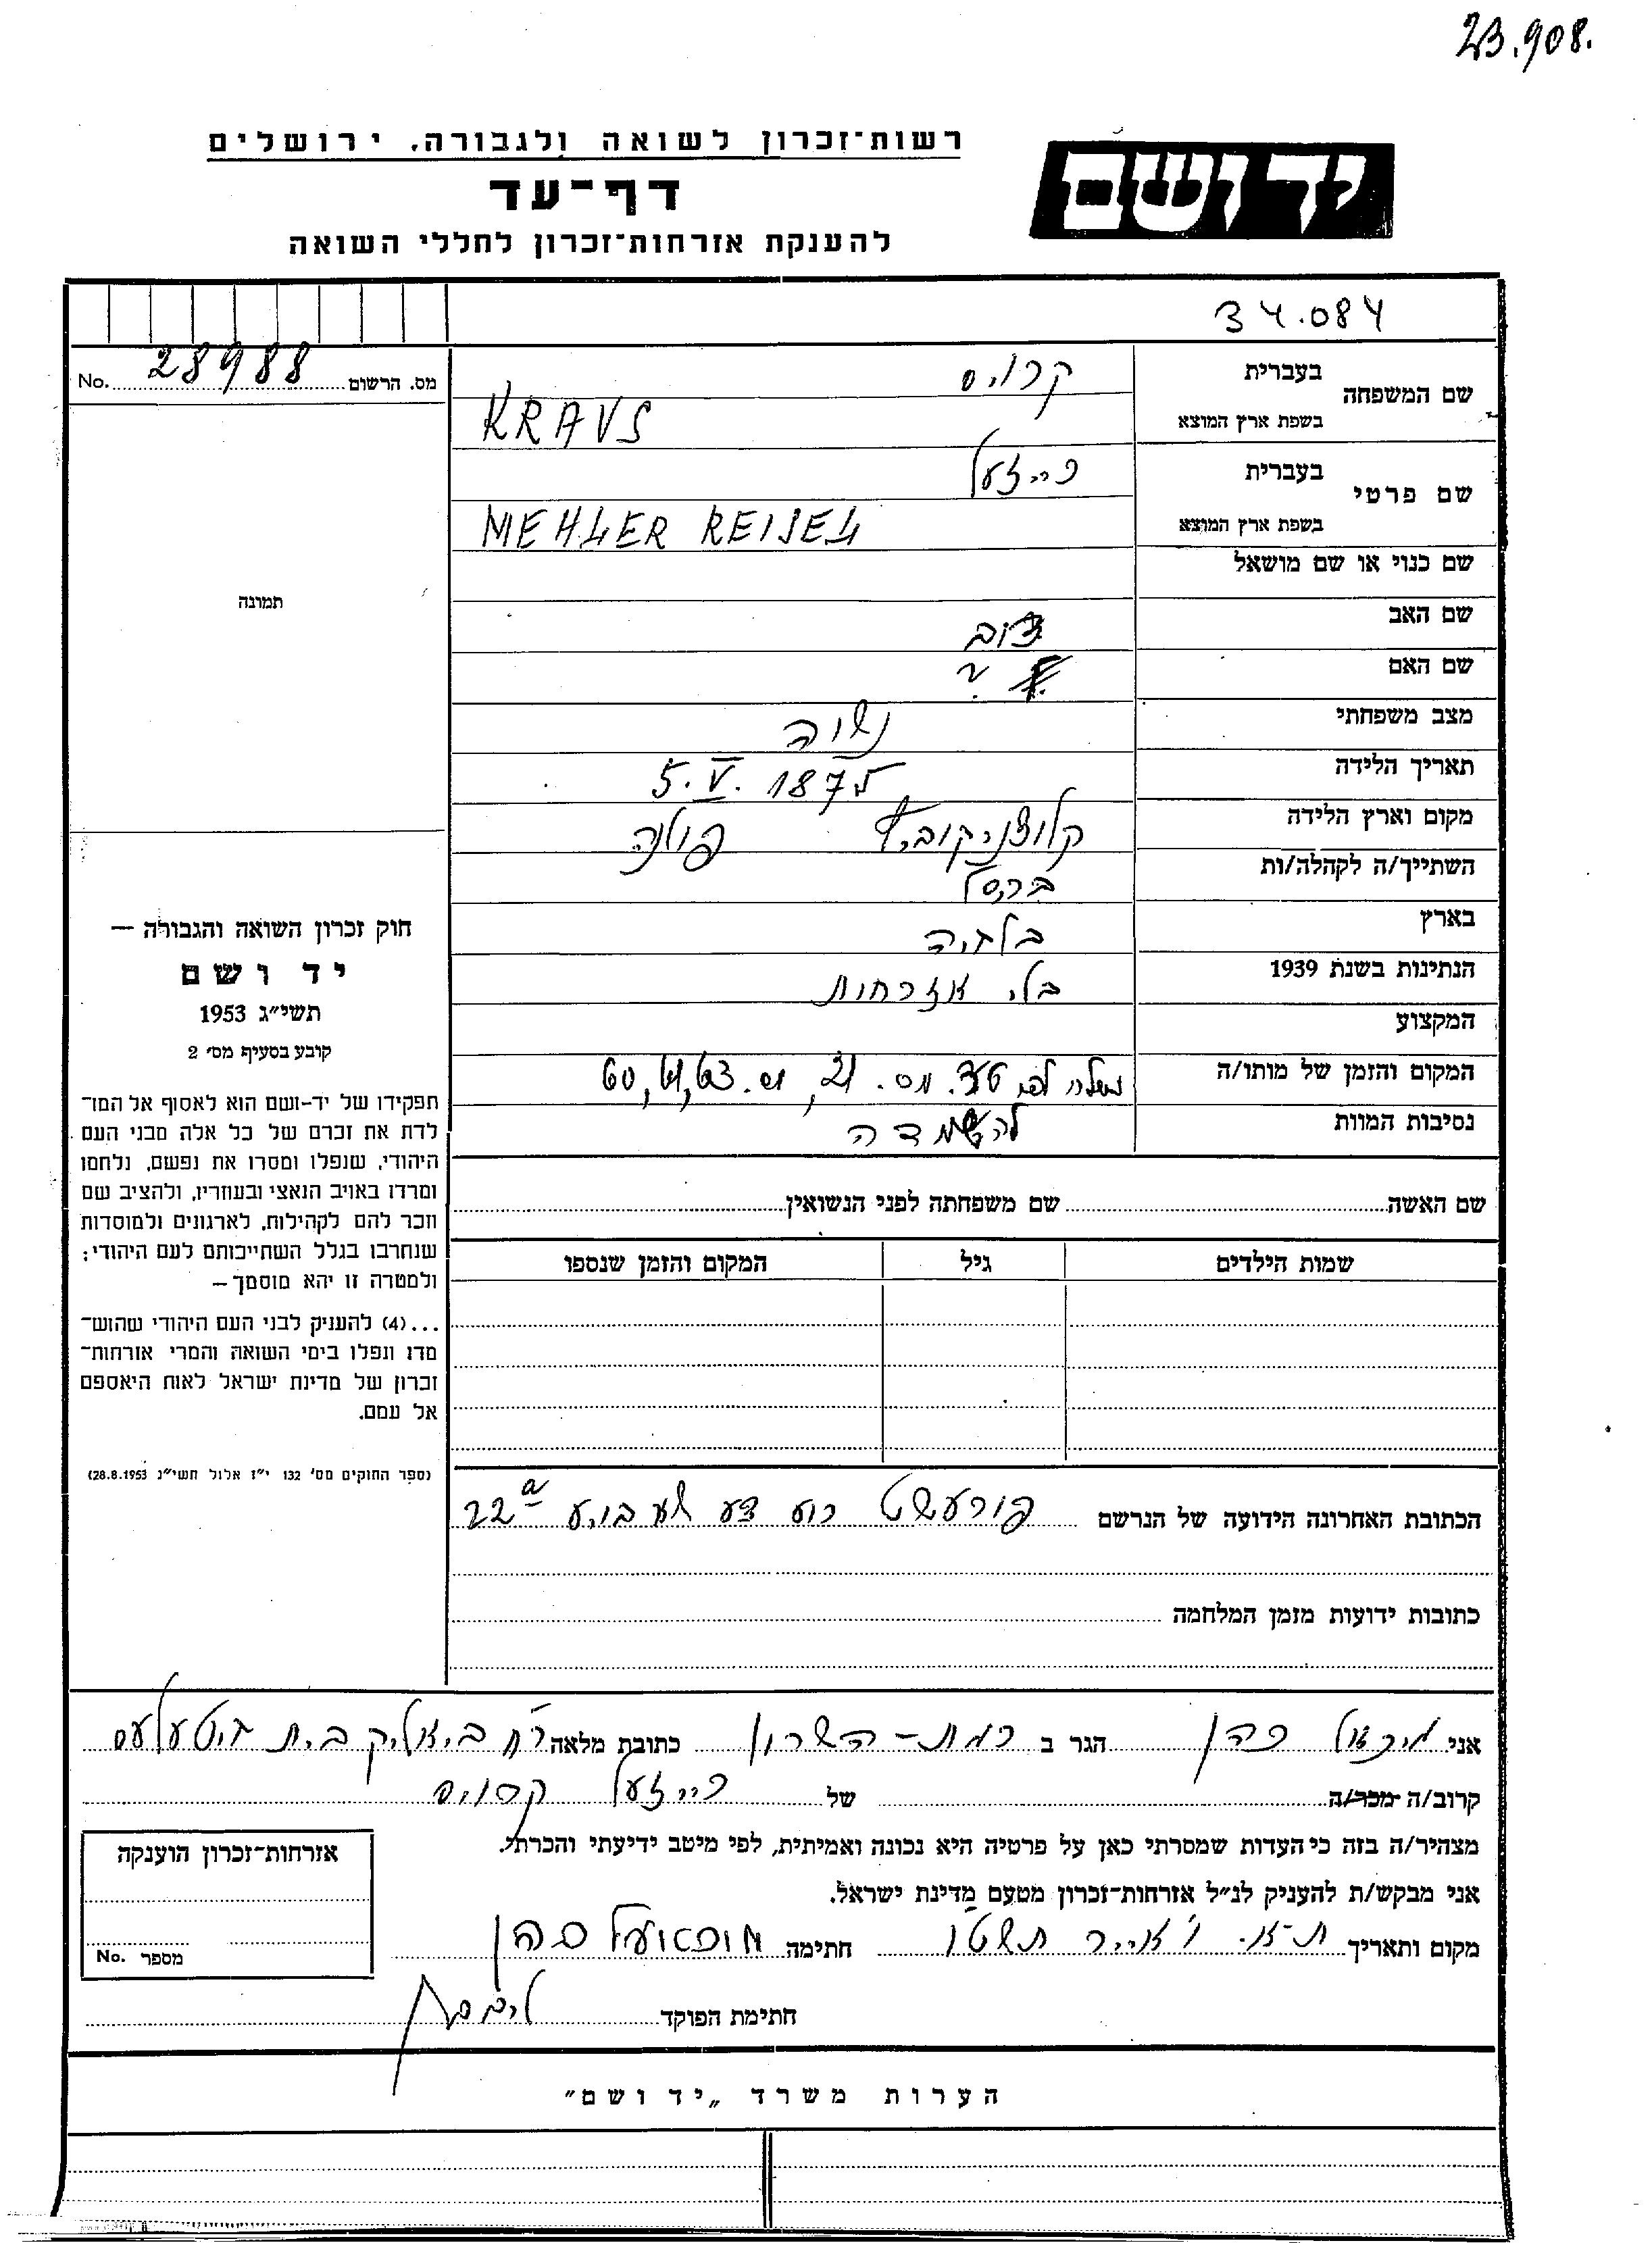 23.908.
יד ושם
רשות־זכרון לשואה ולגבורה, ירושלים
דף־עד
להענקת אזרחות־זכרון לחללי השואה
34.084
מס. הרשום 28988 No.
שם המשפחה
בעברית קרויס
בשפת ארץ המוצא KRAUS
שם פרטי
בעברית רייזעל
בשפת ארץ המוצא MEHLER REISEL
שם כנוי או שם מושאל
תמונה
שם האב
שם האם ?
מצב משפחתי נשוה
תאריך הלידה 5.V. 1875
מקום וארץ הלידה פולניה
השתייך/ה לקהלה/ות בריסל
בארץ בלגיה
הנתינות בשנת 1939 בלי אזרחות
המקצוע
המקום והזמן של מותו/ה מס. 21, 60, 61, 63
נסיבות המוות להשמדה
חוק זכרון השואה והגבורה —
יד ושם
תשי״ג 1953
קובע בסעיף מס׳ 2
תפקידו של יד-ושם הוא לאסוף אל המו־
לדת את זכרם של כל אלה מבני העם
היהודי, שנפלו ומסרו את נפשם, נלחמו
ומרדו באויב הנאצי ובעוזריו, ולהציב שם
וזכר להם לקהילות, לארגונים ולמוסדות
שנחרבו בגלל השתייכותם לעם היהודי;
ולמטרה זו יהא מוסמך —
...(4) להעניק לבני העם היהודי שהוש־
מדו ונפלו בימי השואה והמרי אזרחות־
זכרון של מדינת ישראל לאות היאספם
אל עמם.
(ספר החוקים מס׳ 132 י״ז אלול תשי״ג 28.8.1953)
שם האשה שם משפחתה לפני הנשואין
שמות הילדים גיל המקום והזמן שנספו
הכתובת האחרונה הידועה של הנרשם 22a
כתובות ידועות מזמן המלחמה
אני מיכאל כהן הגר ב רמת-השרון כתובת מלאה רח ביאליק בית
קרוב/ה מכר/ה של רייזעל קרויס
מצהיר/ה בזה כי העדות שמסרתי כאן על פרטיה היא נכונה ואמיתית, לפי מיטב ידיעתי והכרתי.
אני מבקש/ת להעניק לנ״ל אזרחות־זכרון מטעם מדינת ישראל.
מקום ותאריך ת-א. ו אייר תשטו חתימה כהן
חתימת הפוקד
אזרחות־זכרון הוענקה
מספר No.
הערות משרד „יד ושם״